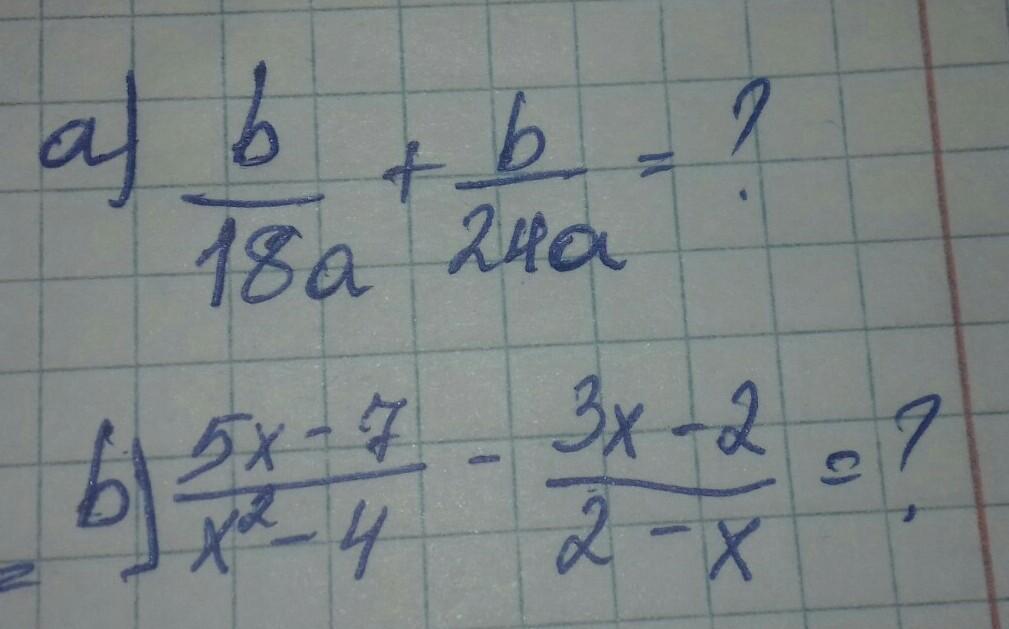 a) b/18a + b/24a = ?
b) 5x - 7/x² - 4 - 3x - 2/2 - x = ?
=